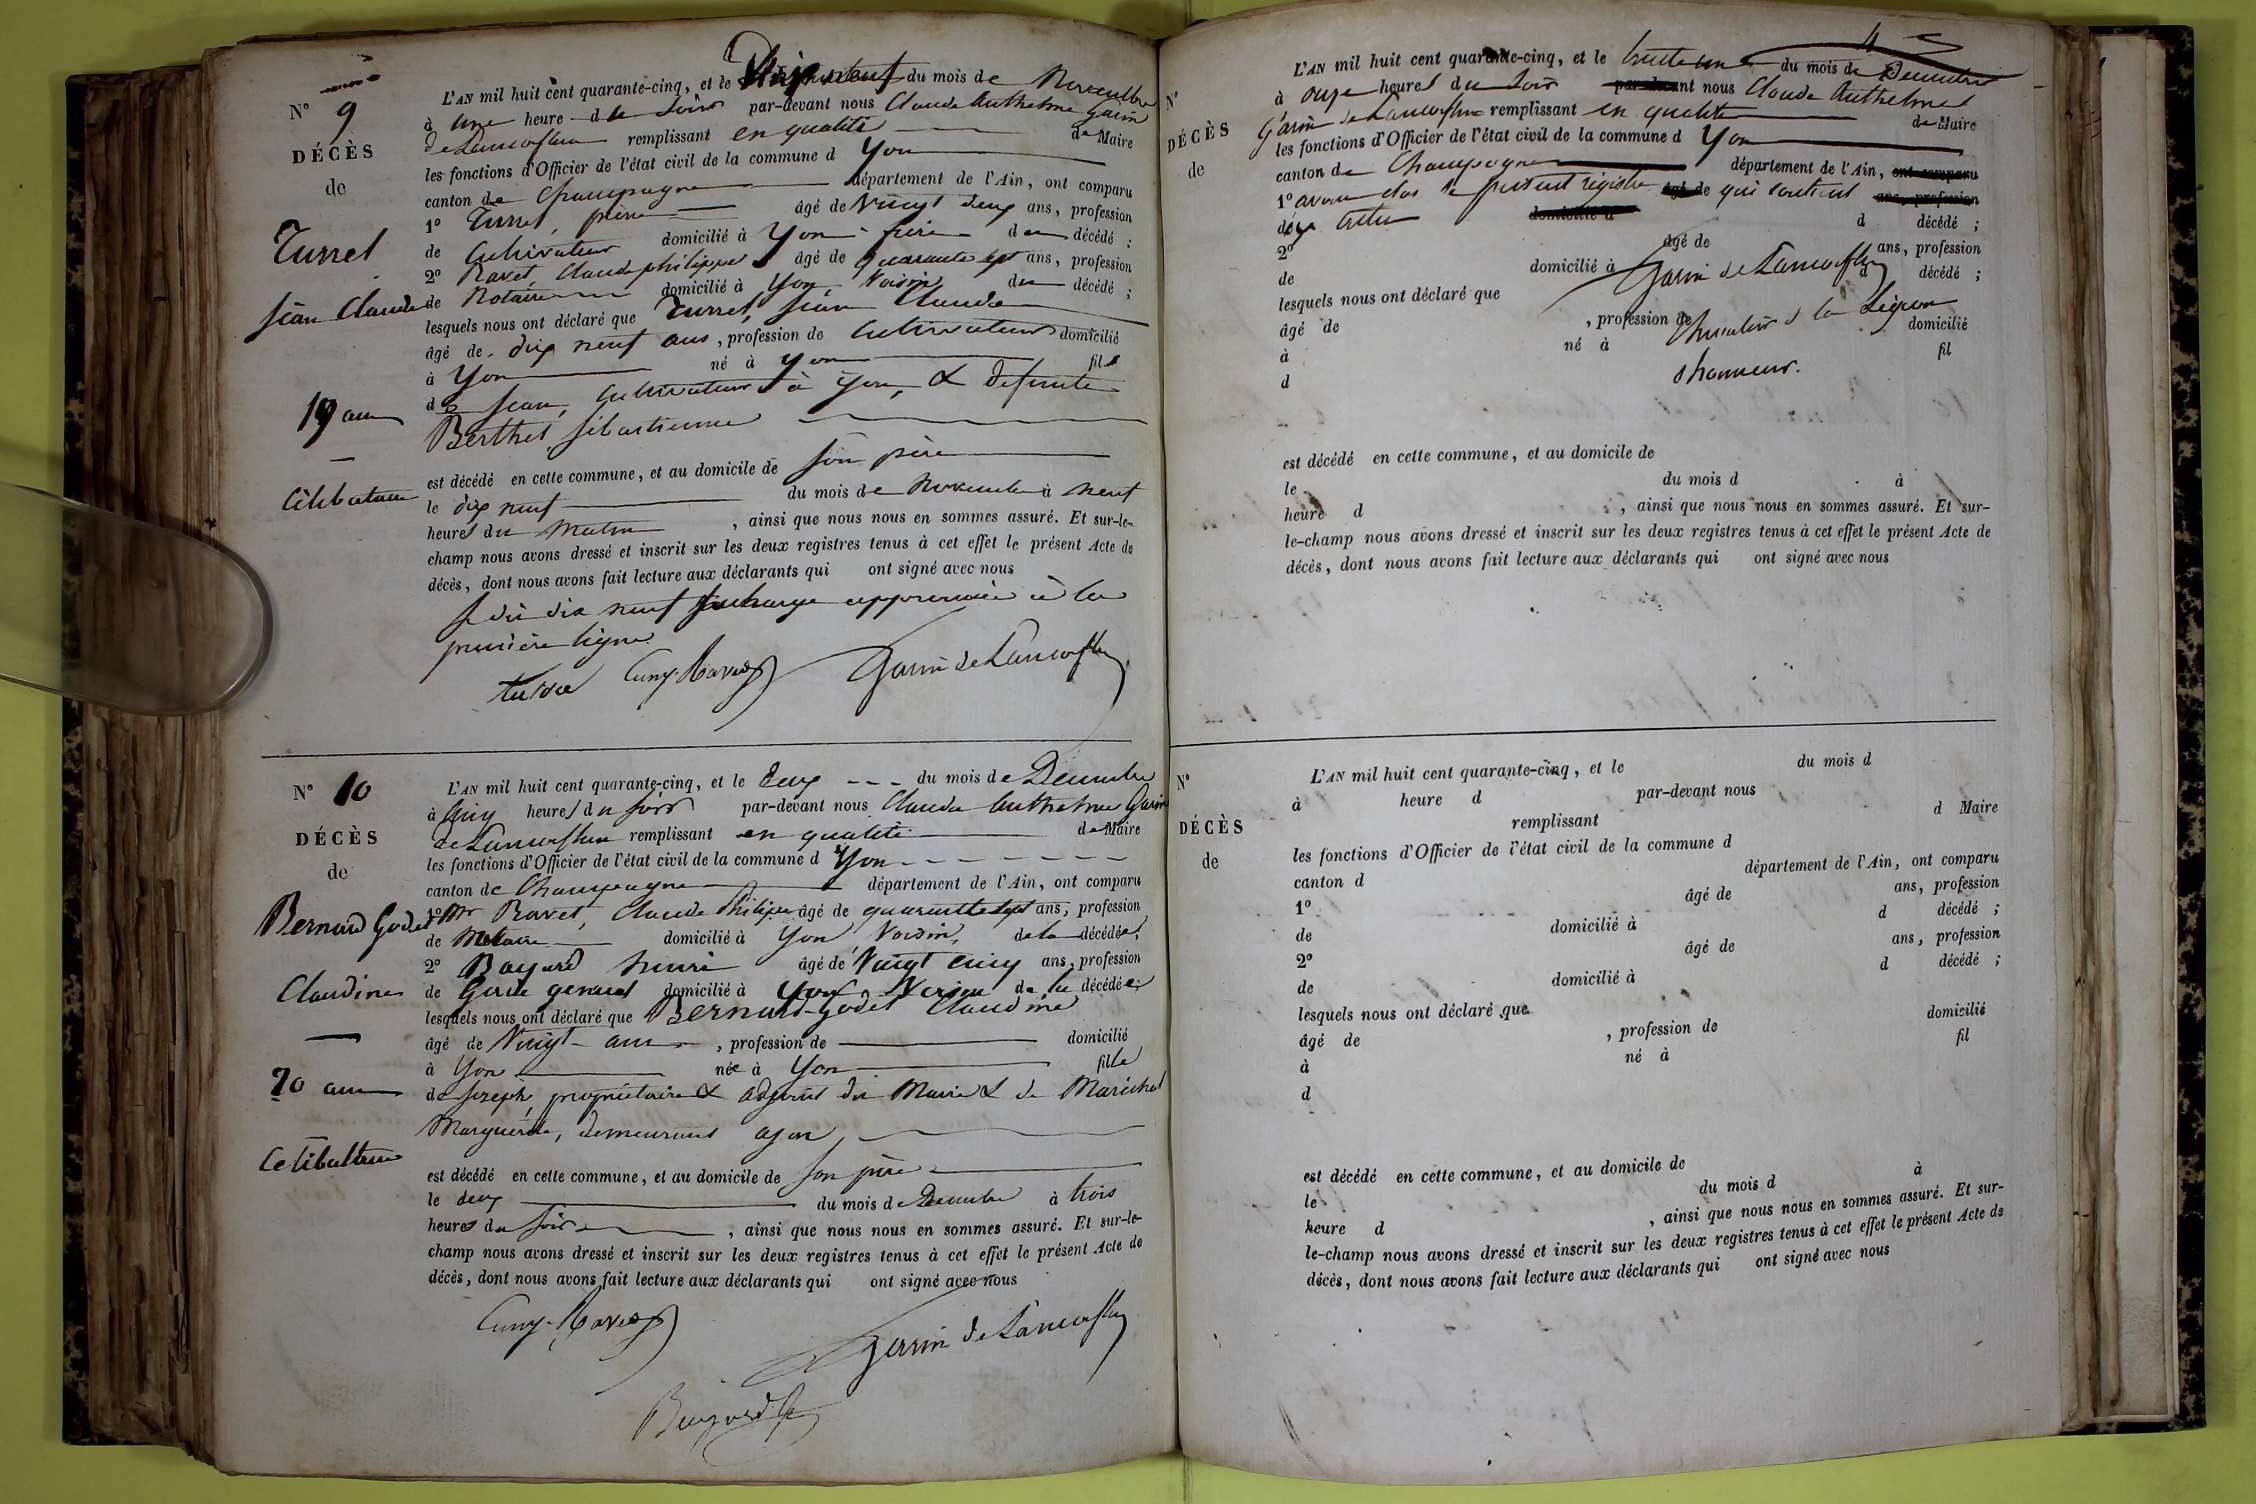 N° 9
DÉCÈS
de
Turrel
Jean Claude
19 ans
Célibataire
L'AN mil huit cent quarante-cinq, et le Dix neuf du mois de Novembre
à une heure du Soir par-devant nous Claude Anthelme Garin
de Lamorflan remplissant en qualité de Maire
les fonctions d'Officier de l'état civil de la commune d Yon
canton de Champagne département de l'Ain, ont comparu
1° Turrel, pierre âgé de Vingt deux ans, profession
de Cultivateur domicilié à Yon frère du décédé ;
2° Ravet, Claude philippe âgé de quarante sept ans, profession
de Notaire domicilié à Yon, Voisin du décédé ;
lesquels nous ont déclaré que Turrel, Jean Claude
âgé de dix neuf ans, profession de Cultivateur domicilié
à Yon né à Yon fils
de Jean, Cultivateur à Yon, & defunte
Berthet Sébastienne
est décédé en cette commune, et au domicile de son père
le dix neuf du mois de Novembre à neuf
heures du Matin, ainsi que nous nous en sommes assuré. Et sur-le-
champ nous avons dressé et inscrit sur les deux registres tenus à cet effet le présent Acte de
décès, dont nous avons fait lecture aux déclarants qui ont signé avec nous
dix neuf surcharge approuvée à la
première ligne
Cuny Ravet Garin de Lamorflan
N° 10
DÉCÈS
de
Bernard Godet
Claudine
20 ans
Celibataire
L'AN mil huit cent quarante-cinq, et le deux du mois de Decembre
à cinq heures du soir par-devant nous Claude Anthelme Garin
de Lamorflan remplissant en qualité de Maire
les fonctions d'Officier de l'état civil de la commune d Yon
canton de Champagne département de l'Ain, ont comparu
1° Mr Ravet, Claude Philippe âgé de quarante sept ans, profession
de Notaire domicilié à Yon, Voisin, de la décédée,
2° Bayard henri âgé de Vingt cinq ans, profession
de Garde general domicilié à Yon Voisin de la décédée;
lesquels nous ont déclaré que Bernard-Godet Claudine
âgé de Vingt ans, profession de domicilié
à Yon née à Yon fille
de Joseph, propriétaire & adjoint du Maire & de Maréchal
Marguerite, demeurant a yon,
est décédé en cette commune, et au domicile de son père
le deux du mois de Decembre à trois
heures du soir, ainsi que nous nous en sommes assuré. Et sur-le-
champ nous avons dressé et inscrit sur les deux registres tenus à cet effet le présent Acte de
décès, dont nous avons fait lecture aux déclarants qui ont signé avec nous
Cuny-Ravet Garin de Lamorflan
N°
DÉCÈS
de
L'AN mil huit cent quarante-cinq, et le trente un du mois de Decembre
à onze heures du Soir par-devant nous Claude Anthelme
Garin de Lamorflan remplissant en qualité de Maire
les fonctions d'Officier de l'état civil de la commune d Yon
canton de Champagne département de l'Ain, ont comparu
1° avons clos le présent régistre âgé de qui contient ans, profession
domicilié à d décédé ;
2° âgé de ans, profession
de domicilié à d décédé ;
Garin de Lamorflan
lesquels nous ont déclaré que
âgé de , profession de domicilié
Chevalier de la Légion
à né à fil
d
d'honneur.
est décédé en cette commune, et au domicile de
le du mois d à
heure d , ainsi que nous nous en sommes assuré. Et sur-
le-champ nous avons dressé et inscrit sur les deux registres tenus à cet effet le présent Acte de
décès, dont nous avons fait lecture aux déclarants qui ont signé avec nous
N°
DÉCÈS
de
L'AN mil huit cent quarante-cinq, et le du mois d
à heure d par-devant nous
remplissant d Maire
les fonctions d'Officier de l'état civil de la commune d
canton d département de l'Ain, ont comparu
1° âgé de ans, profession
de domicilié à d décédé ;
2° âgé de ans, profession
de domicilié à d décédé ;
lesquels nous ont déclaré que
âgé de , profession de domicilié
à né à fil
d
est décédé en cette commune, et au domicile de
le du mois d à
heure d , ainsi que nous nous en sommes assuré. Et sur-
le-champ nous avons dressé et inscrit sur les deux registres tenus à cet effet le présent Acte de
décès, dont nous avons fait lecture aux déclarants qui ont signé avec nous